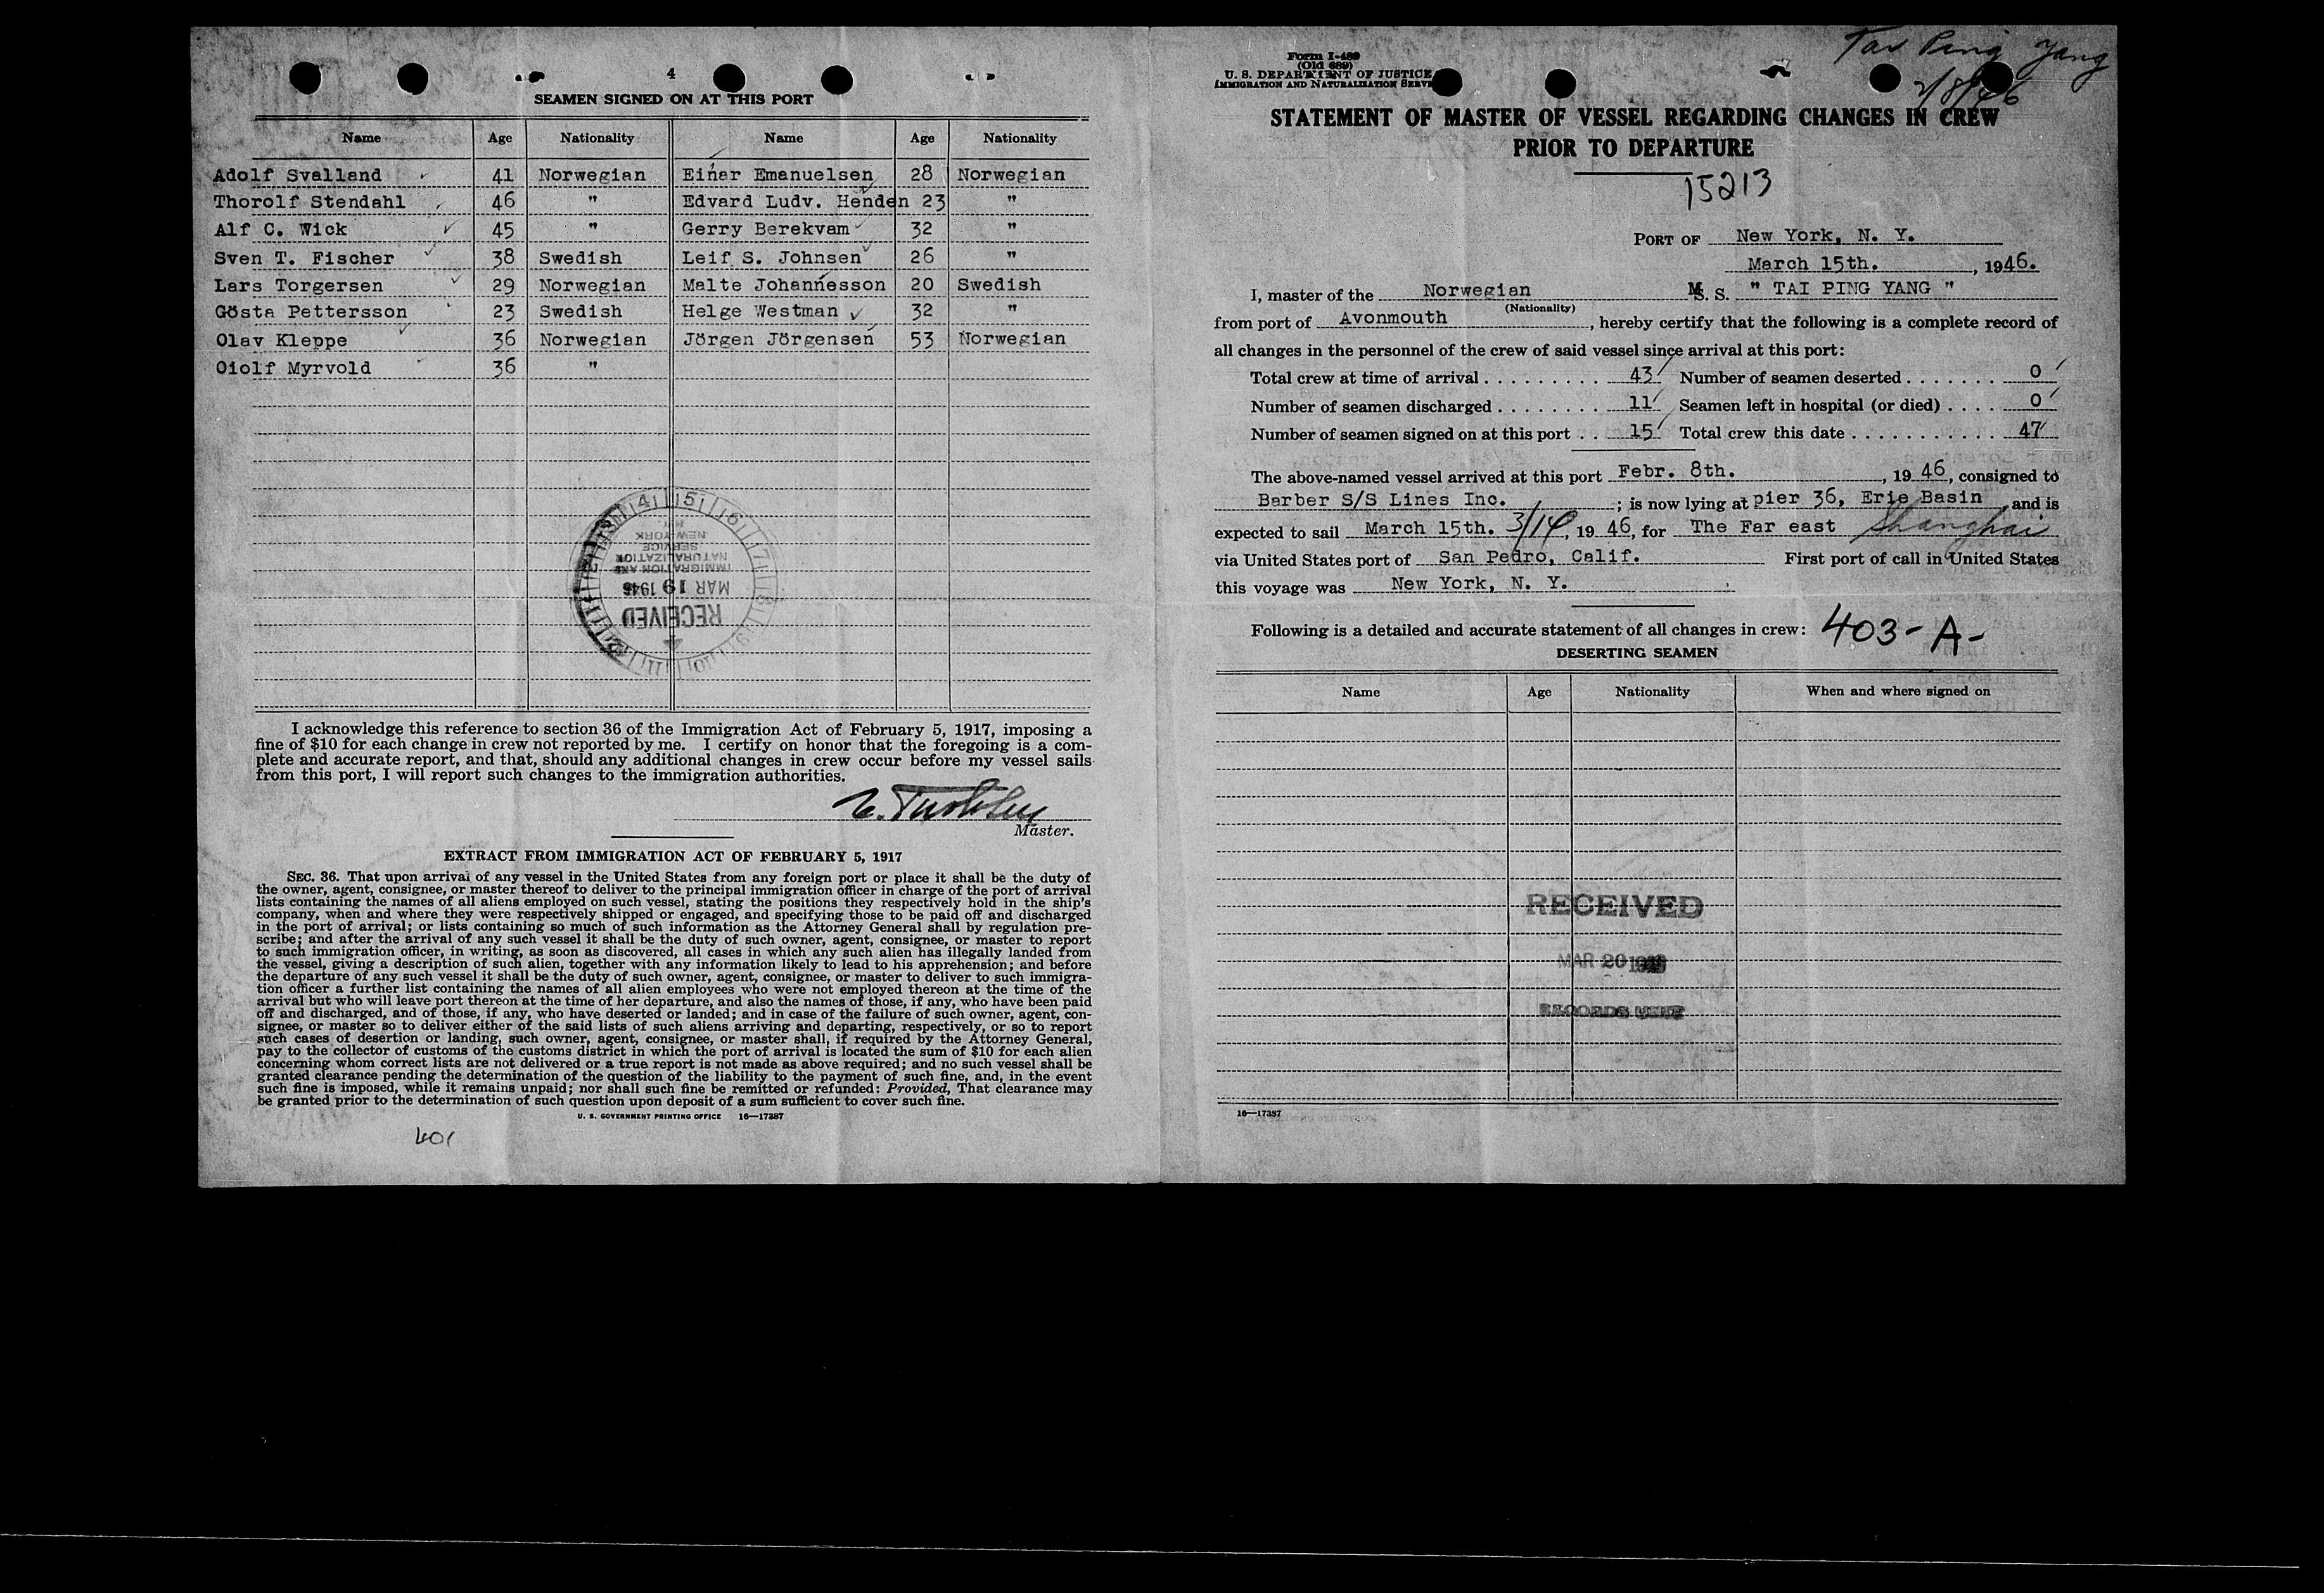 4
SEAMEN SIGNED ON AT THIS PORT
Name Age Nationality Name Age Nationality
Adolf Svalland 41 Norwegian Einar Emanuelsen 28 Norwegian
Thorolf Stendahl 46 " Edvard Ludv. Henden 23 "
Alf C. Wick 45 " Gerry Berekvam 32 "
Sven T. Fischer 38 Swedish Leif S. Johnsen 26 "
Lars Torgersen 29 Norwegian Malte Johannesson 20 Swedish
Gösta Pettersson 23 Swedish Helge Westman 32 "
Olav Kleppe 36 Norwegian Jörgen Jörgensen 53 Norwegian
Oiolf Myrvold 36 "
RECEIVED
MAR 19 1946
IMMIGRATION AND
NATURALIZATION
SERVICE
NEW YORK
I acknowledge this reference to section 36 of the Immigration Act of February 5, 1917, imposing a
fine of $10 for each change in crew not reported by me. I certify on honor that the foregoing is a com-
plete and accurate report, and that, should any additional changes in crew occur before my vessel sails
from this port, I will report such changes to the immigration authorities.
Master.
EXTRACT FROM IMMIGRATION ACT OF FEBRUARY 5, 1917
SEC. 36. That upon arrival of any vessel in the United States from any foreign port or place it shall be the duty of
the owner, agent, consignee, or master thereof to deliver to the principal immigration officer in charge of the port of arrival
lists containing the names of all aliens employed on such vessel, stating the positions they respectively hold in the ship's
company, when and where they were respectively shipped or engaged, and specifying those to be paid off and discharged
in the port of arrival; or lists containing so much of such information as the Attorney General shall by regulation pre-
scribe; and after the arrival of any such vessel it shall be the duty of such owner, agent, consignee, or master to report
to such immigration officer, in writing, as soon as discovered, all cases in which any such alien has illegally landed from
the vessel, giving a description of such alien, together with any information likely to lead to his apprehension; and before
the departure of any such vessel it shall be the duty of such owner, agent, consignee, or master to deliver to such immigra-
tion officer a further list containing the names of all alien employees who were not employed thereon at the time of the
arrival but who will leave port thereon at the time of her departure, and also the names of those, if any, who have been paid
off and discharged, and of those, if any, who have deserted or landed; and in case of the failure of such owner, agent, con-
signee, or master so to deliver either of the said lists of such aliens arriving and departing, respectively, or so to report
such cases of desertion or landing, such owner, agent, consignee, or master shall, if required by the Attorney General,
pay to the collector of customs of the customs district in which the port of arrival is located the sum of $10 for each alien
concerning whom correct lists are not delivered or a true report is not made as above required; and no such vessel shall be
granted clearance pending the determination of the question of the liability to the payment of such fine, and, in the event
such fine is imposed, while it remains unpaid; nor shall such fine be remitted or refunded: Provided, That clearance may
be granted prior to the determination of such question upon deposit of a sum sufficient to cover such fine.
U. S. GOVERNMENT PRINTING OFFICE 16—17387
401
Form I-489
(Old 689)
U. S. DEPARTMENT OF JUSTICE
IMMIGRATION AND NATURALIZATION SERVI
Tai Ping Yang
2/8/46
STATEMENT OF MASTER OF VESSEL REGARDING CHANGES IN CREW
PRIOR TO DEPARTURE
15213
PORT OF New York, N. Y.
March 15th. , 1946.
I, master of the Norwegian M. S. " TAI PING YANG "
(Nationality)
from port of Avonmouth , hereby certify that the following is a complete record of
all changes in the personnel of the crew of said vessel since arrival at this port:
Total crew at time of arrival . . . . . . . . . 43 Number of seamen deserted . . . . . . . 0
Number of seamen discharged . . . . . . . . 11 Seamen left in hospital (or died) . . . . 0
Number of seamen signed on at this port . . 15 Total crew this date . . . . . . . . . . . 47
The above-named vessel arrived at this port Febr. 8th. , 19 46, consigned to
Barber S/S Lines Inc. ; is now lying at pier 36, Erie Basin and is
expected to sail March 15th. 3/14, 19 46, for The Far east Shanghai
via United States port of San Pedro, Calif. First port of call in United States
this voyage was New York, N. Y.
Following is a detailed and accurate statement of all changes in crew: 403-A-
DESERTING SEAMEN
Name Age Nationality When and where signed on
RECEIVED
MAR 20
RECORDS UNIT
16—17387